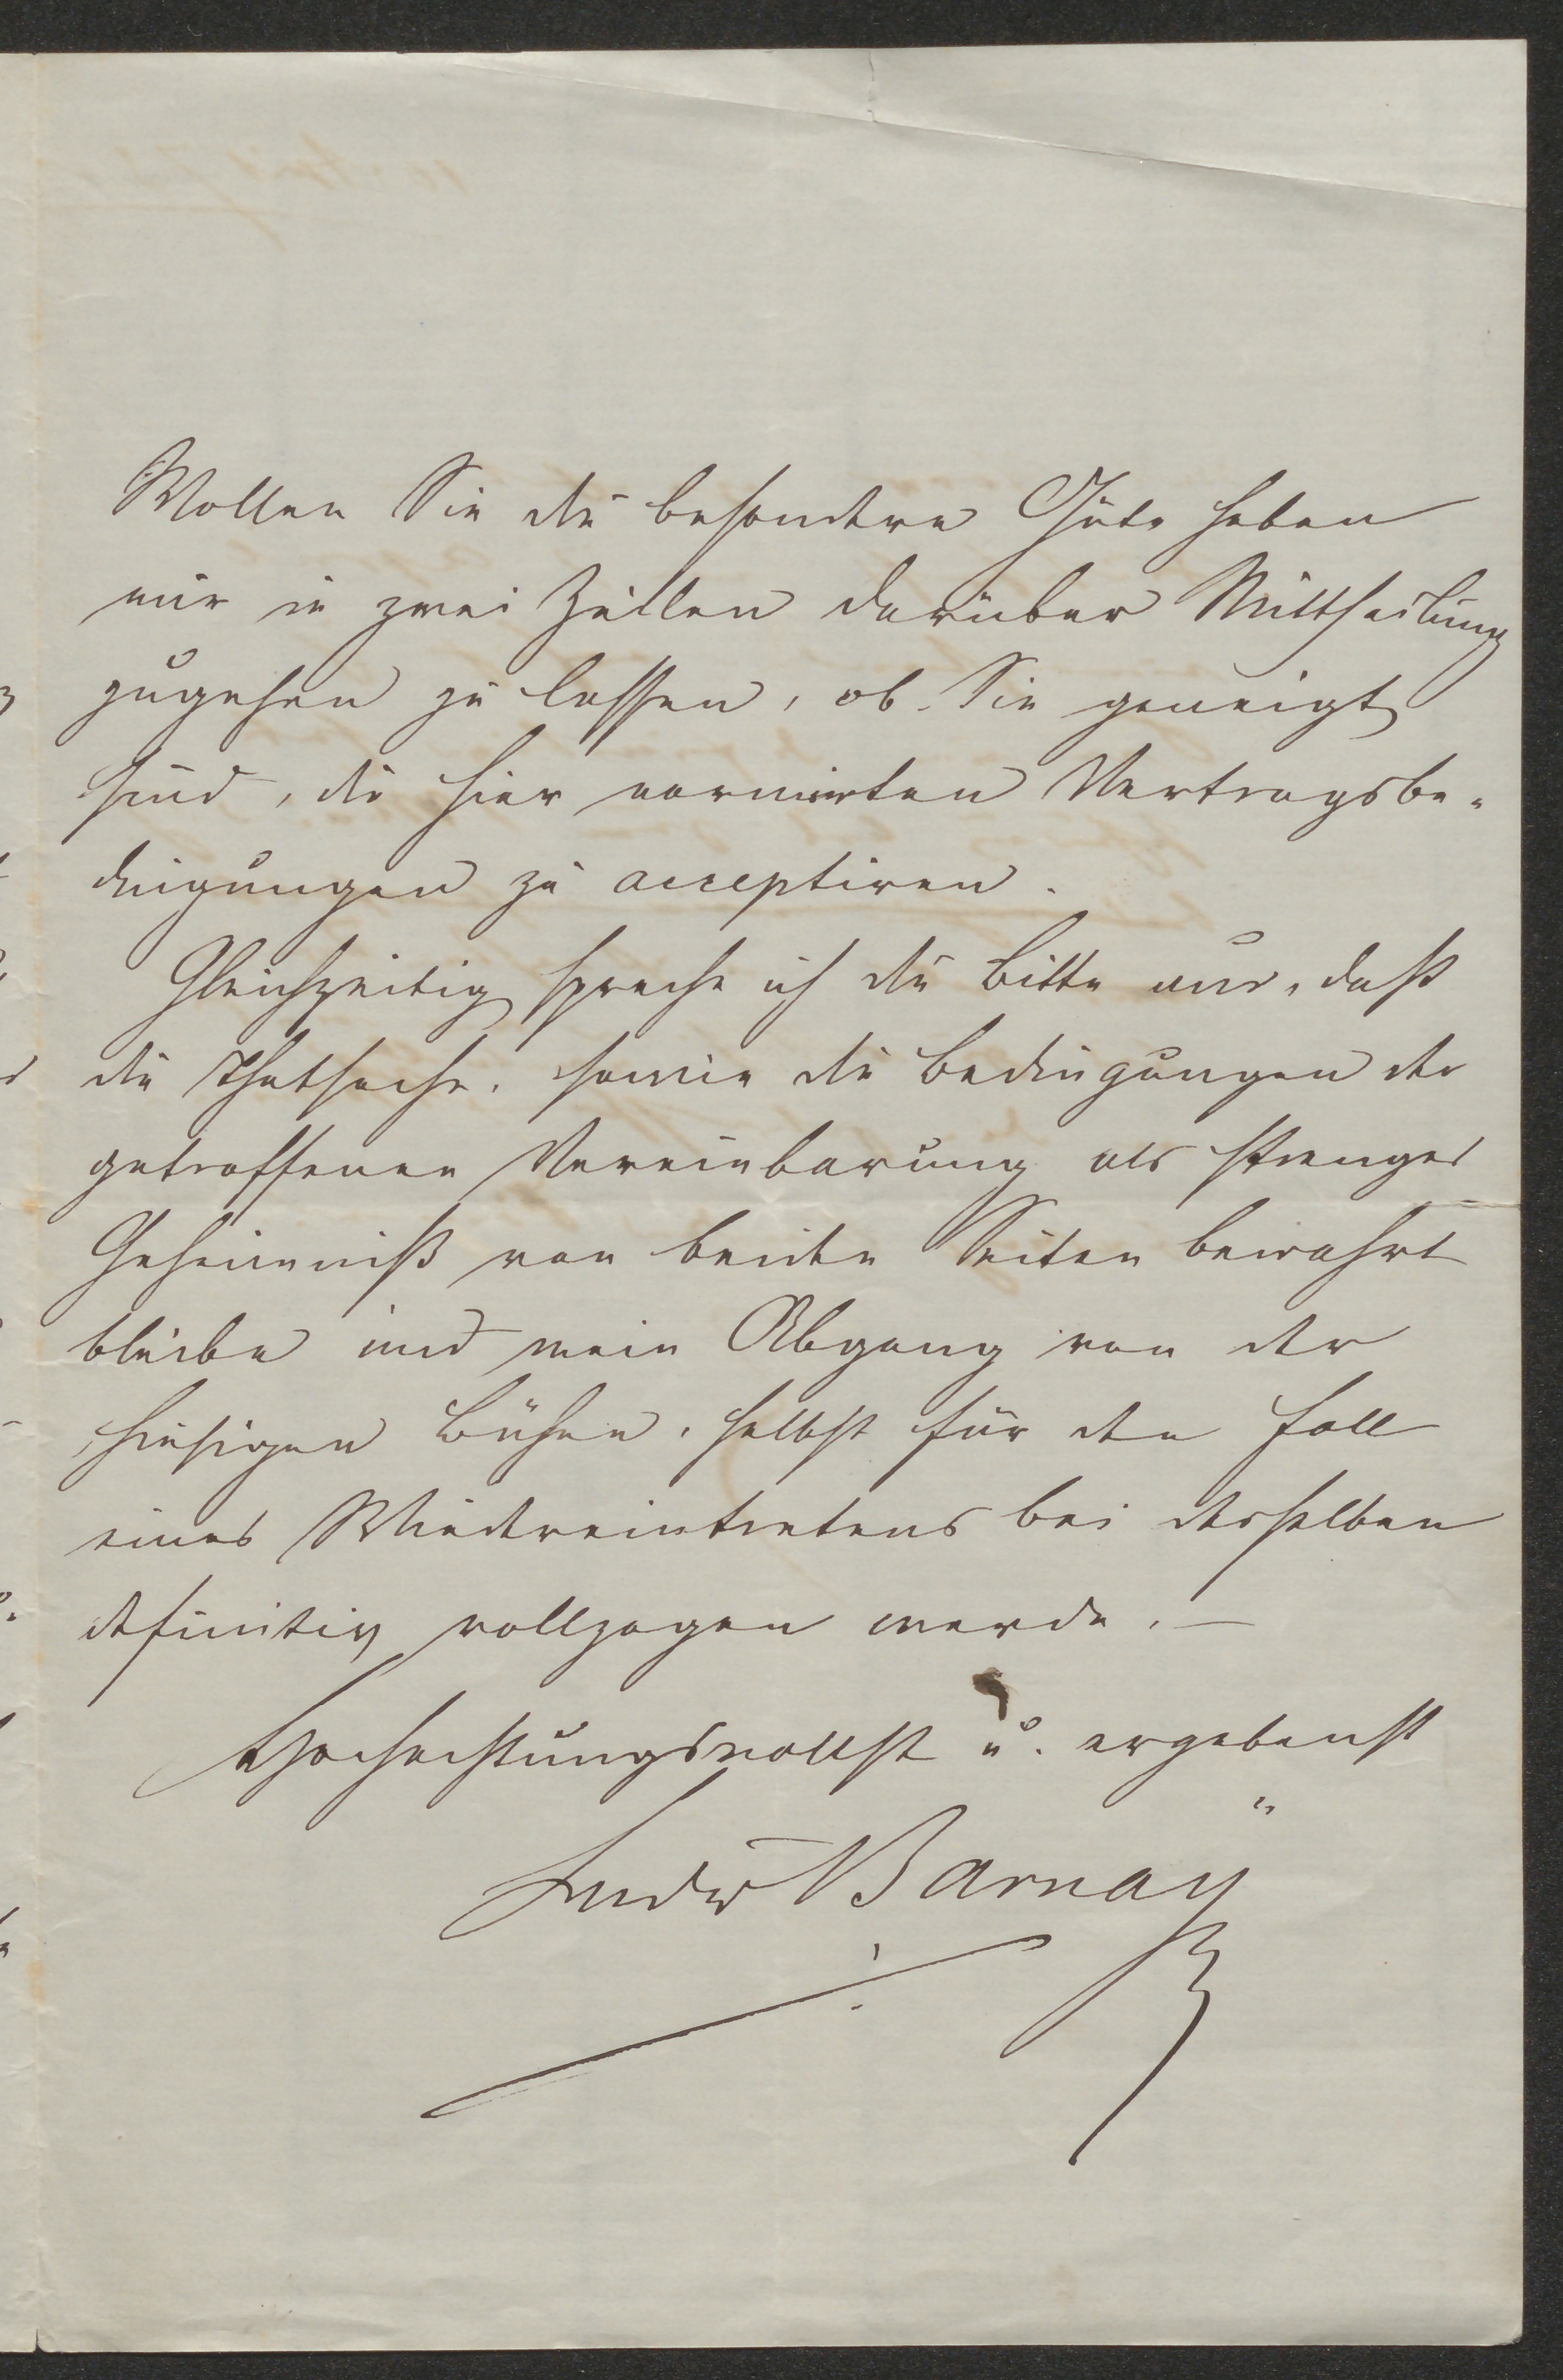 Wollen Sie die besondere Güte haben
mir in zwei Zeilen darüber Mittheilung
zugehen zu lassen, ob Sie geneigt
sind, die hier normirten Vertragsbe-
dingungen zu acceptiren.
Gleichzeitig spreche ich die Bitte aus, daß
die Thatsache, sowie die Bedingungen der
getroffenen Vereinbarung als strenges
Geheimniß von beiden Seiten bewahrt
bleibe und mein Abgang von der
hiesigen Bühne, selbst für den Fall
eines Wiedereintretens bei derselben
definitiv vollzogen werde. —
Hochachtungsvollst u. ergebenst
Ludw Barnaÿ